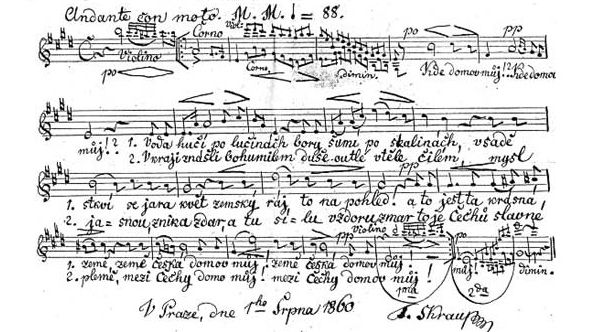 Andante con moto. M. M. ♩ = 88.
Violino Corno Viol: po pp
po Corno dimin. Kde domov můj!? Kde domov
můj!? 1. Voda hučí po lučinách bory šumí po skalinách, v sadě
2. V kraji znáš-li bohumilém duše outlé v těle čilém, mysl
1. stkví se jara květ zemský ráj to na pohled! a to jest ta krásná,
2. ja = snou, znika zdar, a tu sí = lu vzdoru zmar to je Čechů slavné
Violino pp po
1. země, země česká domov můj, země česká, domov můj! můj! dimin.
2. plémě, mezi Čechy domov můj! mezi Čechy domov můj!
1ma 2da
V Praze, dne 1ho Srpna 1860 F. Škraup